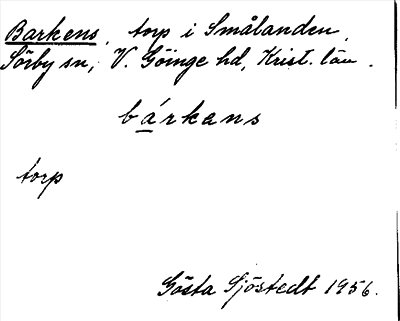 Barkens, torp i Smålanden,
Sörby sn, V. Göinge hd, Krist. län.
bárkans
torp
Gösta Sjöstedt 1956.